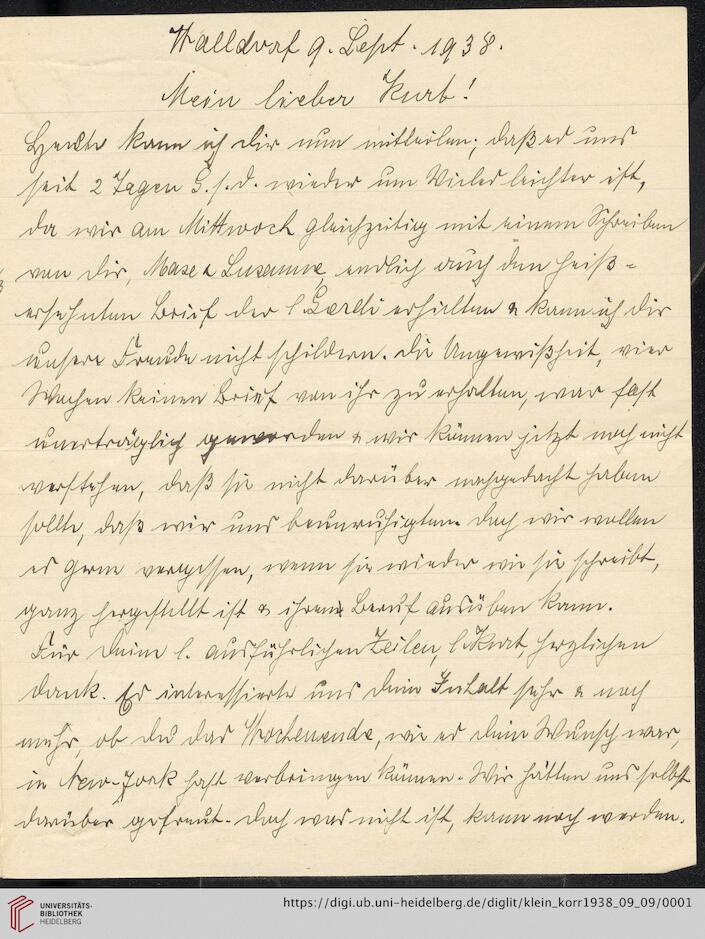 Walldorf 9. Sept. 1938.
Mein lieber Kurt!
Heute kann ich Dir nun mitteilen, daß es uns
seit 2 Tagen G. s. d. wieder um Vieles leichter ist,
da wir am Mittwoch gleichzeitig mit einem Schreiben
von Dir, & Susanne, endlich auch den heiß-
ersehnten Brief der l. Gerdi erhielten & kann ich Dir
unsere Freude nicht schildern. Die Ungewißheit, vier
Wochen keinen Brief von ihr zu erhalten, war fast
unerträglich geworden & wir können jetzt noch nicht
verstehen, daß sie nicht darüber nachgedacht haben
sollte, daß wir uns beunruhigten. Doch wir wollen
es gerne vergessen, wenn sie wieder wie sie schreibt,
ganz hergestellt ist & ihren Beruf ausüben kann.
Für Deine l. ausführlichen Zeilen, l. Kurt, herzlichen
Dank. Es interessierte uns dein Inhalt sehr & noch
mehr, ob Du das Wochenende, wie es Dein Wunsch war,
in New-York hast verbringen können. Wir hätten uns selbst
darüber gefreut. Doch was nicht ist, kann noch werden.
UNIVERSITÄTS-
BIBLIOTHEK
HEIDELBERG
https://digi.ub.uni-heidelberg.de/diglit/klein_korr1938_09_09/0001